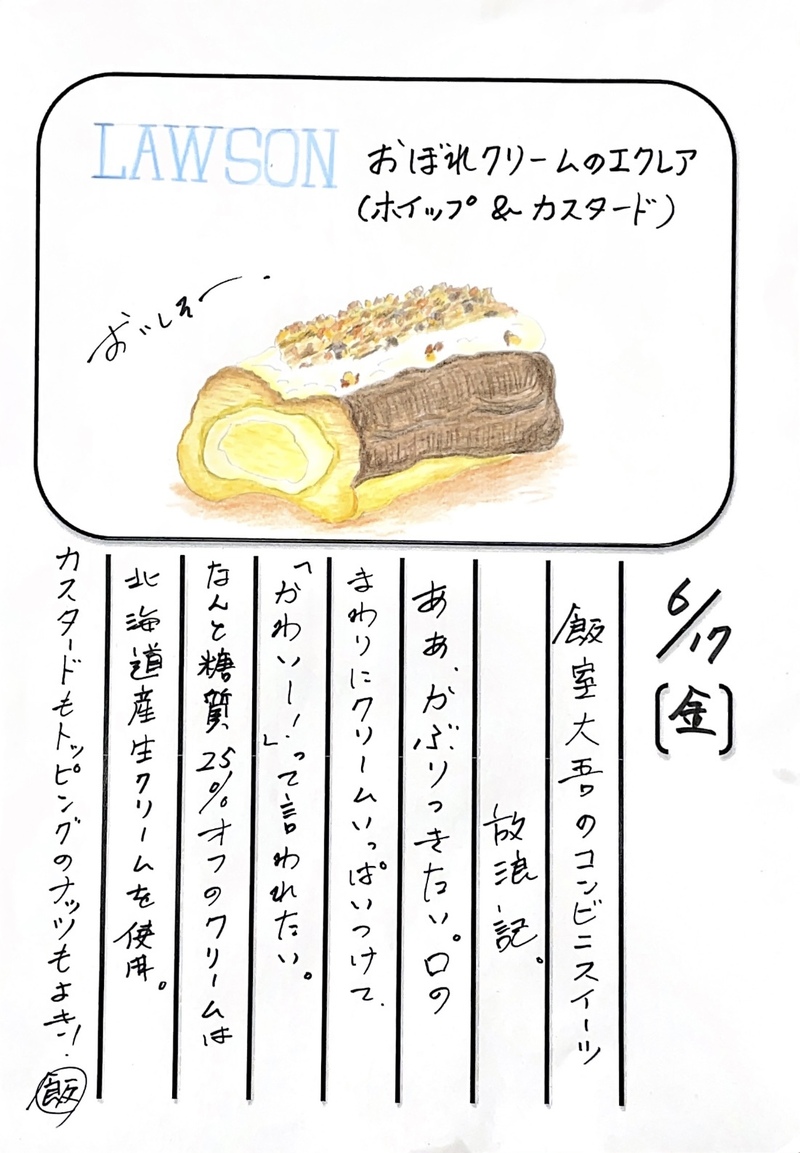 LAWSON
おぼれクリームのエクレア
(ホイップ&カスタード)
おいしそー.
6/17
[金]
飯室大吾のコンビニスイーツ
放浪記。
ああ、かぶりつきたい。口の
まわりにクリームいっぱいつけて、
「かわいー!」って言われたい。
なんと糖質25%オフのクリームは
北海道産生クリームを使用。
カスタードもトッピングのナッツもよき!.
飯